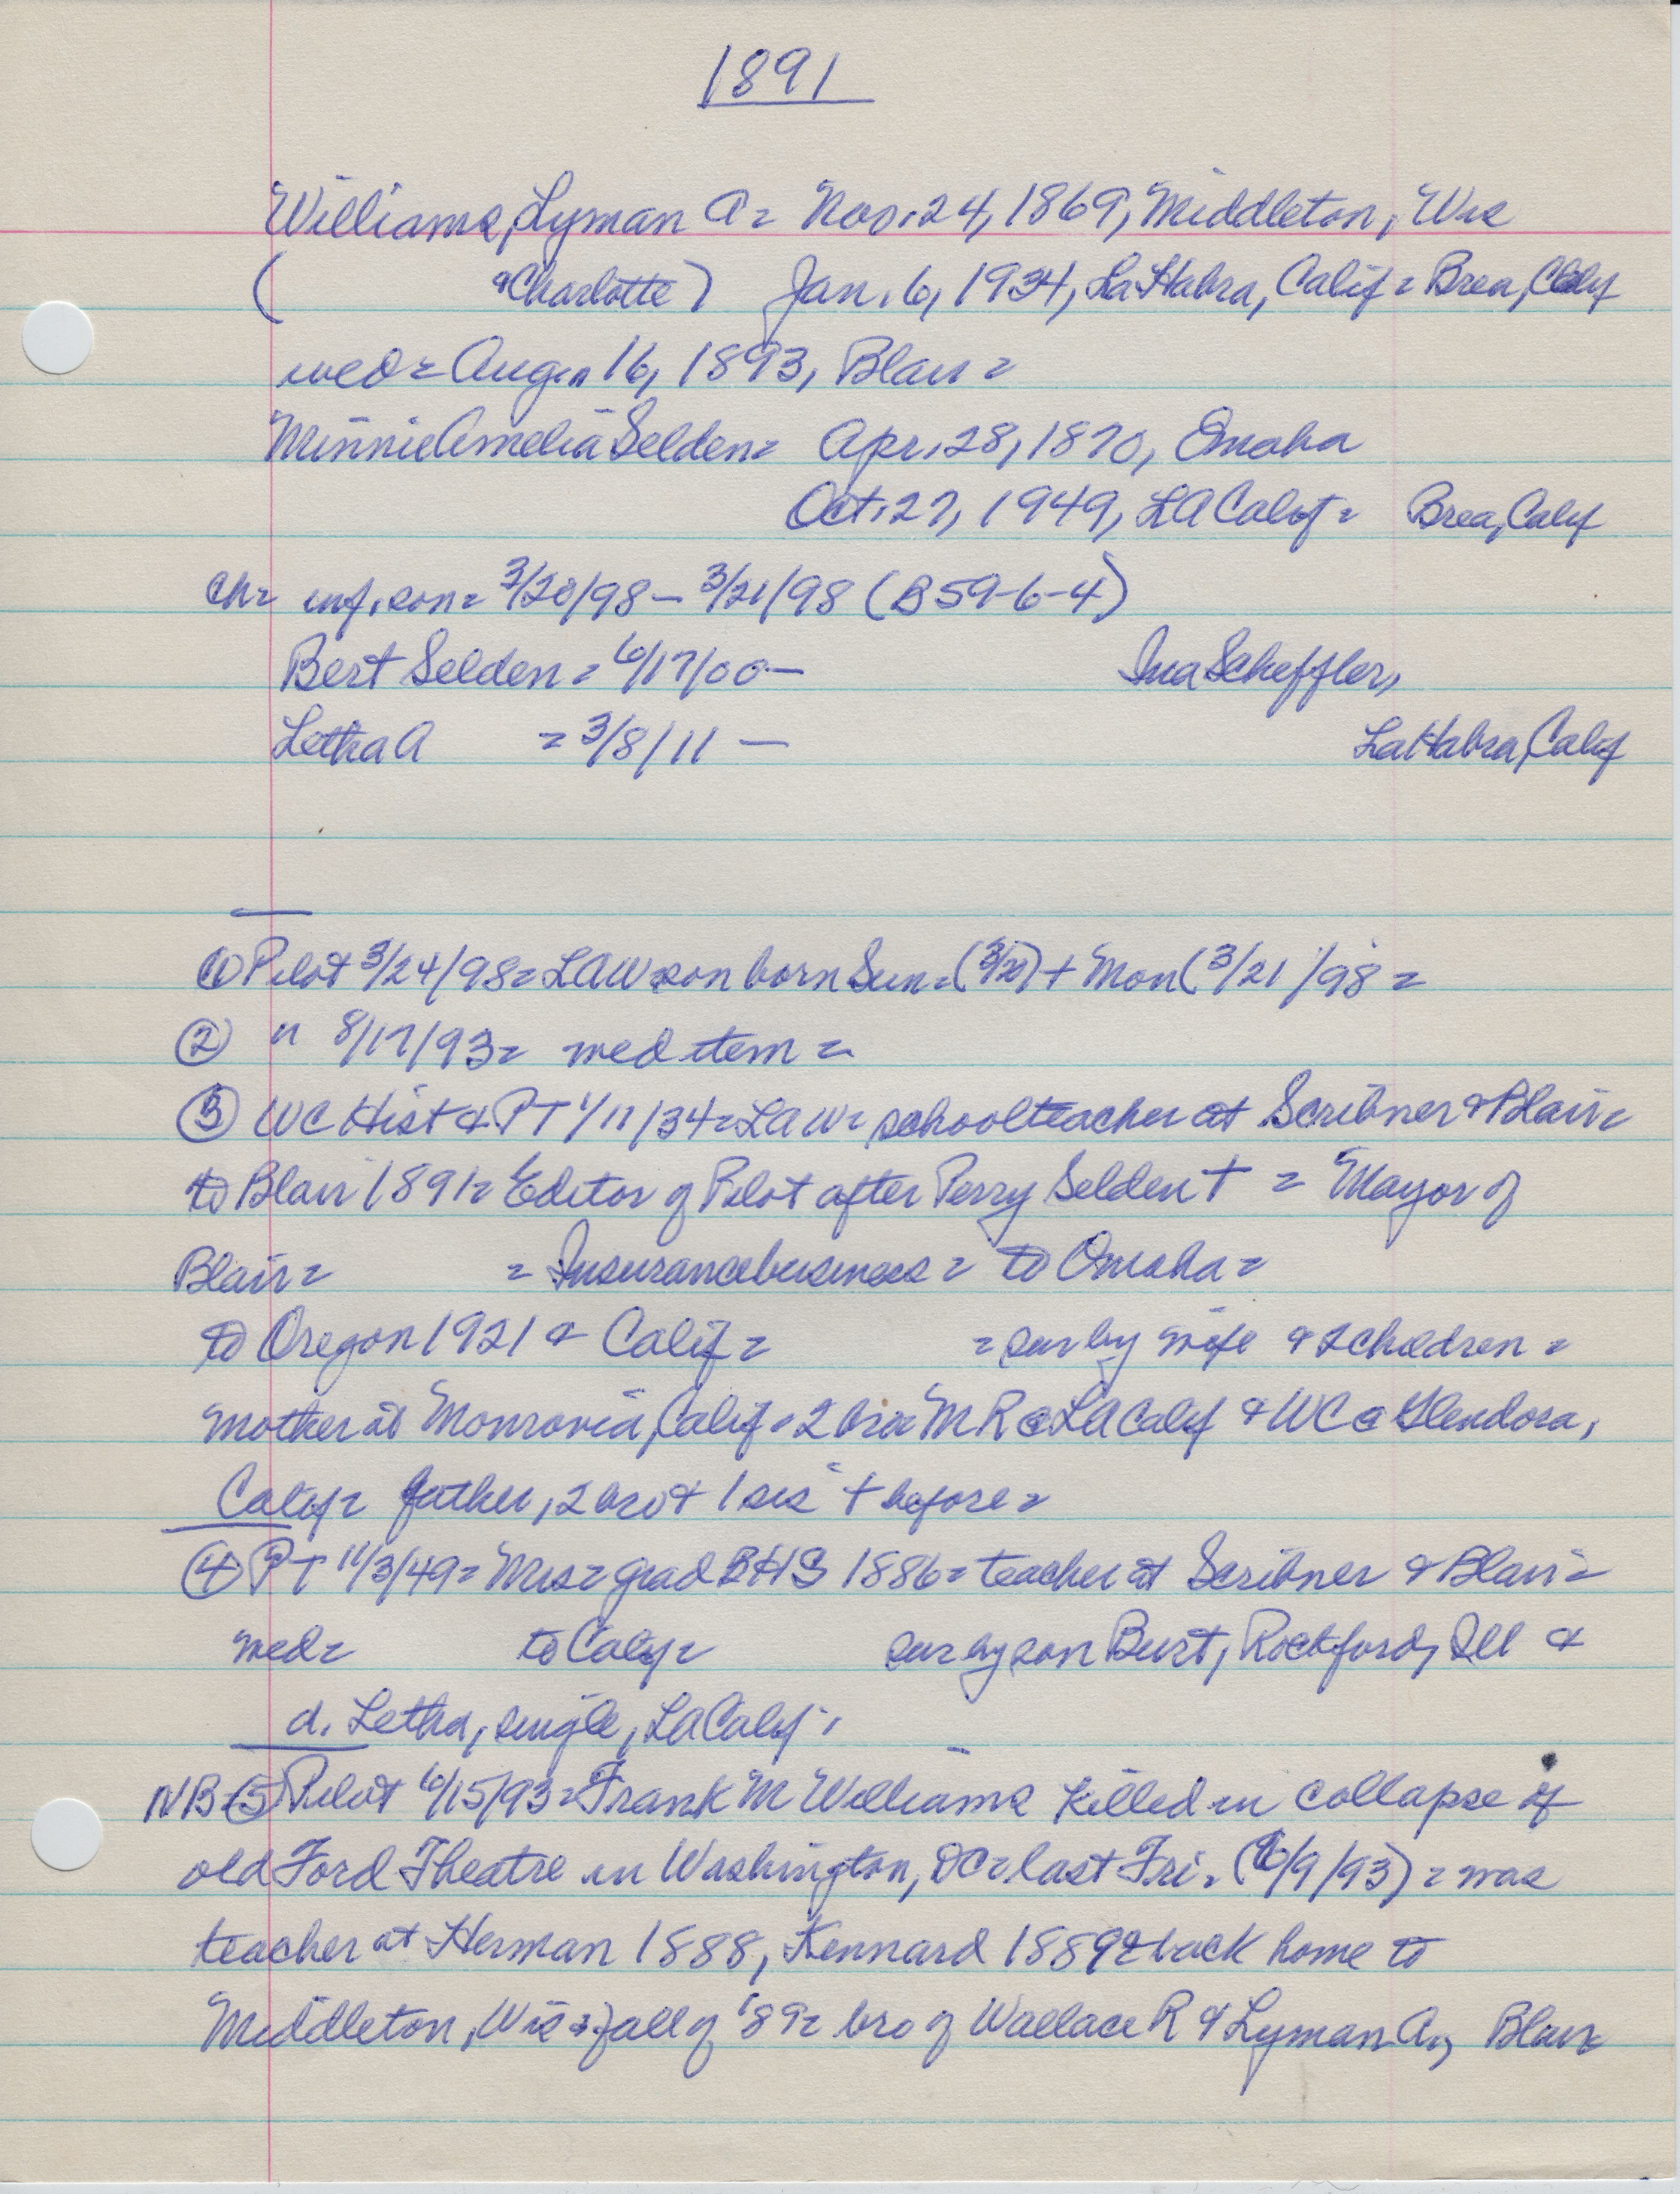 1891
Williams, Lyman A = Nov. 24, 1869, Middleton, Wis
( & Charlotte) Jan. 6, 1934, La Habra, Calif = Brea, Calif
wed = Aug 16, 1893, Blair =
Minnie Amelia Selden = Apr. 28, 1870, Omaha
Oct. 27, 1949, LA Calif = Brea, Calif
ch = inf. son = 3/20/98 - 3/21/98 (B59-6-4)
Bert Selden = 6/17/00 - Ina Scheffler,
Letha A = 3/8/11 - La Habra, Calif
① Pilot 3/24/98 = LAW son born Sun = (3/20) + Mon (3/21/98 =
② " 8/17/93 = wed item =
③ WC Hist & PT 1/11/34 = LAW = schoolteacher at Scribner & Blair =
to Blair 1891 = Editor of Pilot after Perry Selden + = Mayor of
Blair = = Insurance business = to Omaha =
to Oregon 1921 & Calif = = sur by wife & 2 children =
mother at Monrovia, Calif = 2 bro = M R @ LA Calif & WC @ Glendora,
Calif = father, 2 bro & 1 sis + before =
④ PT 11/3/49 = Mrs = grad BHS 1886 = teacher at Scribner & Blair =
wed = to Calif = sur by son Burt, Rockford, Ill &
d. Letha, single, LA Calif.
NB ⑤ Pilot 6/15/93 = Frank M Williams killed in collapse of
old Ford Theatre in Washington, DC = last Fri. (6/9/93) = was
teacher at Herman 1888, Kennard 1889 & back home to
Middleton, Wis = fall of '89 = bro of Wallace R & Lyman A., Blair